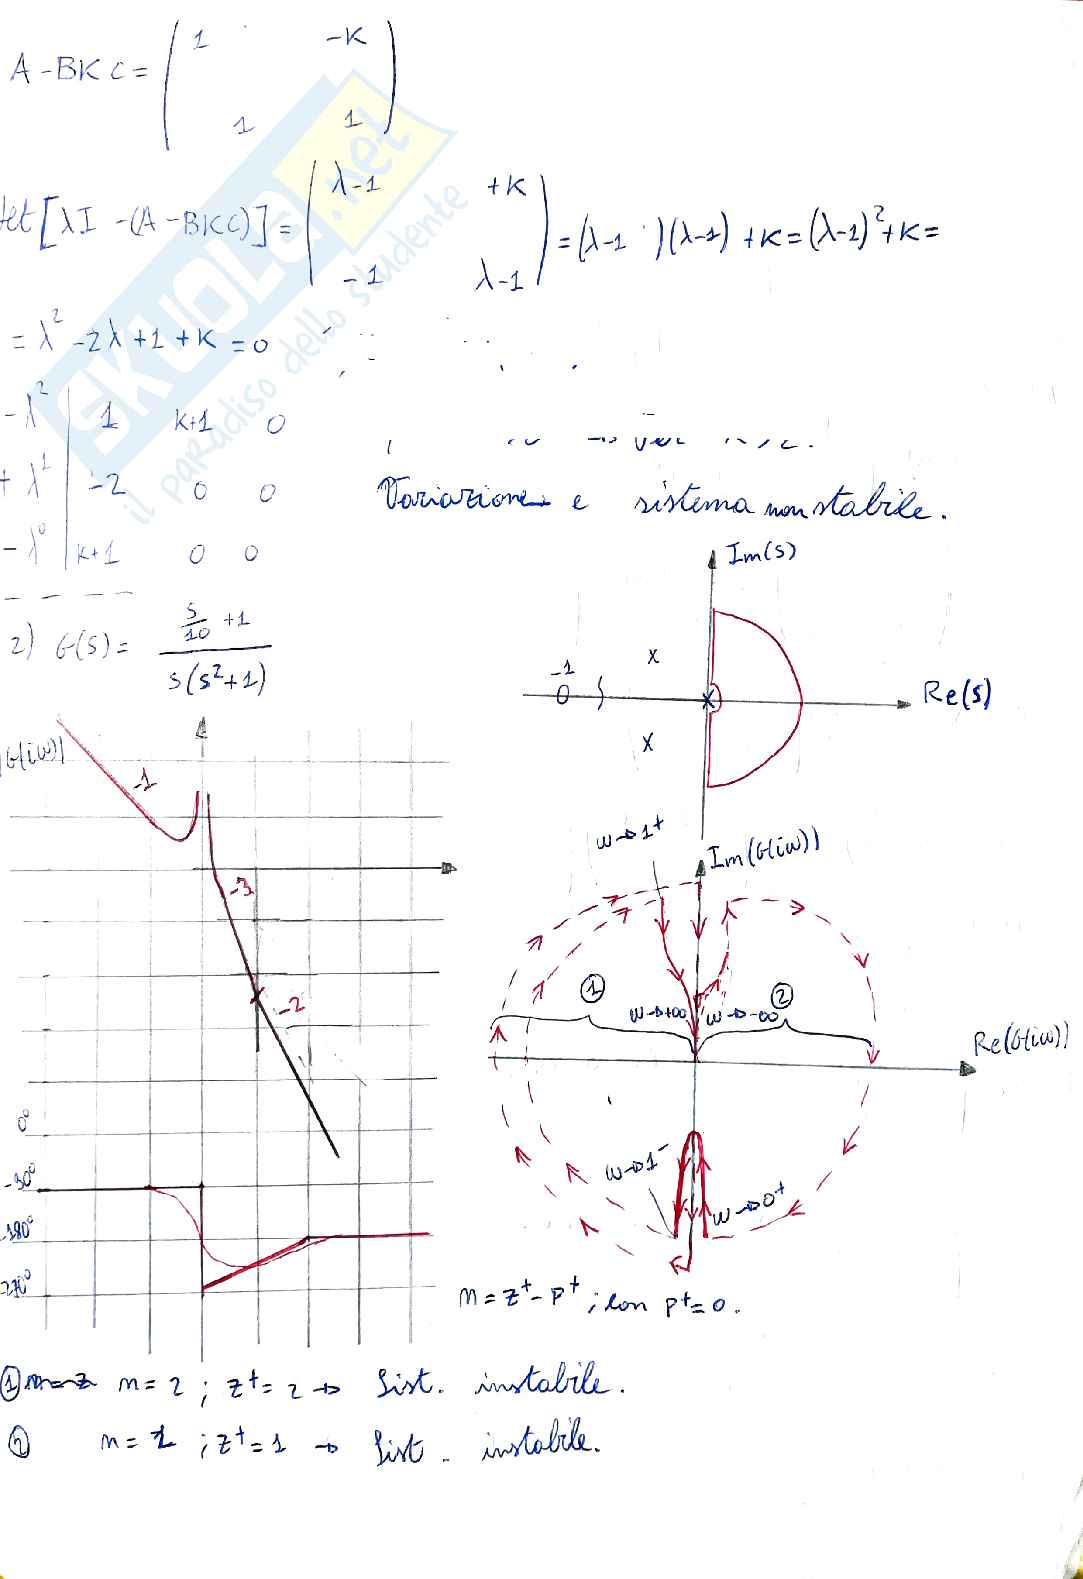 A-BKC = ( 1 -K
1 1 )
det[λI-(A-BKC)] = | λ-1 +K
-1 λ-1 | = (λ-1)(λ-1)+K = (λ-1)²+K =
= λ²-2λ+1+K=0
- λ² | 1 K+1 0
+ λ¹ | -2 0 0
- λ⁰ | K+1 0 0
Variazione e sistema non stabile.
2) G(s) = (s/10 +1) / (s(s²+1))
Im(s)
-1
Re(s)
|G(iω)|
-1
-3
-2
0°
-180°
-270°
ω→1⁺
Im(G(iω))
① ②
ω→+∞ ω→-∞
Re(G(iω))
ω→1⁻
ω→0⁺
n = z⁺-p⁺ ; con p⁺=0.
① n=2 ; z⁺=2 → Sist. instabile.
② n=1 ; z⁺=1 → Sist. instabile.
SKUOLA.net
il paradiso dello studente